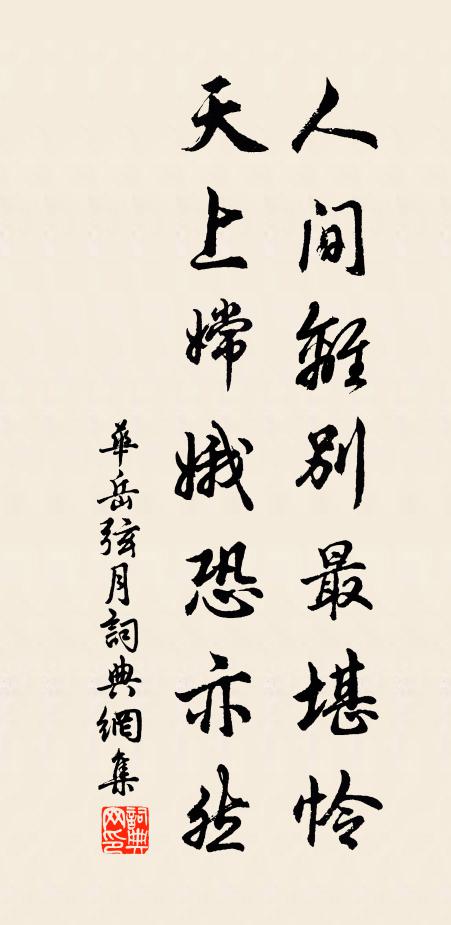 人間離別最堪怜
天上嫦娥恐亦然
華岳弦月詞典網集
詞典网印